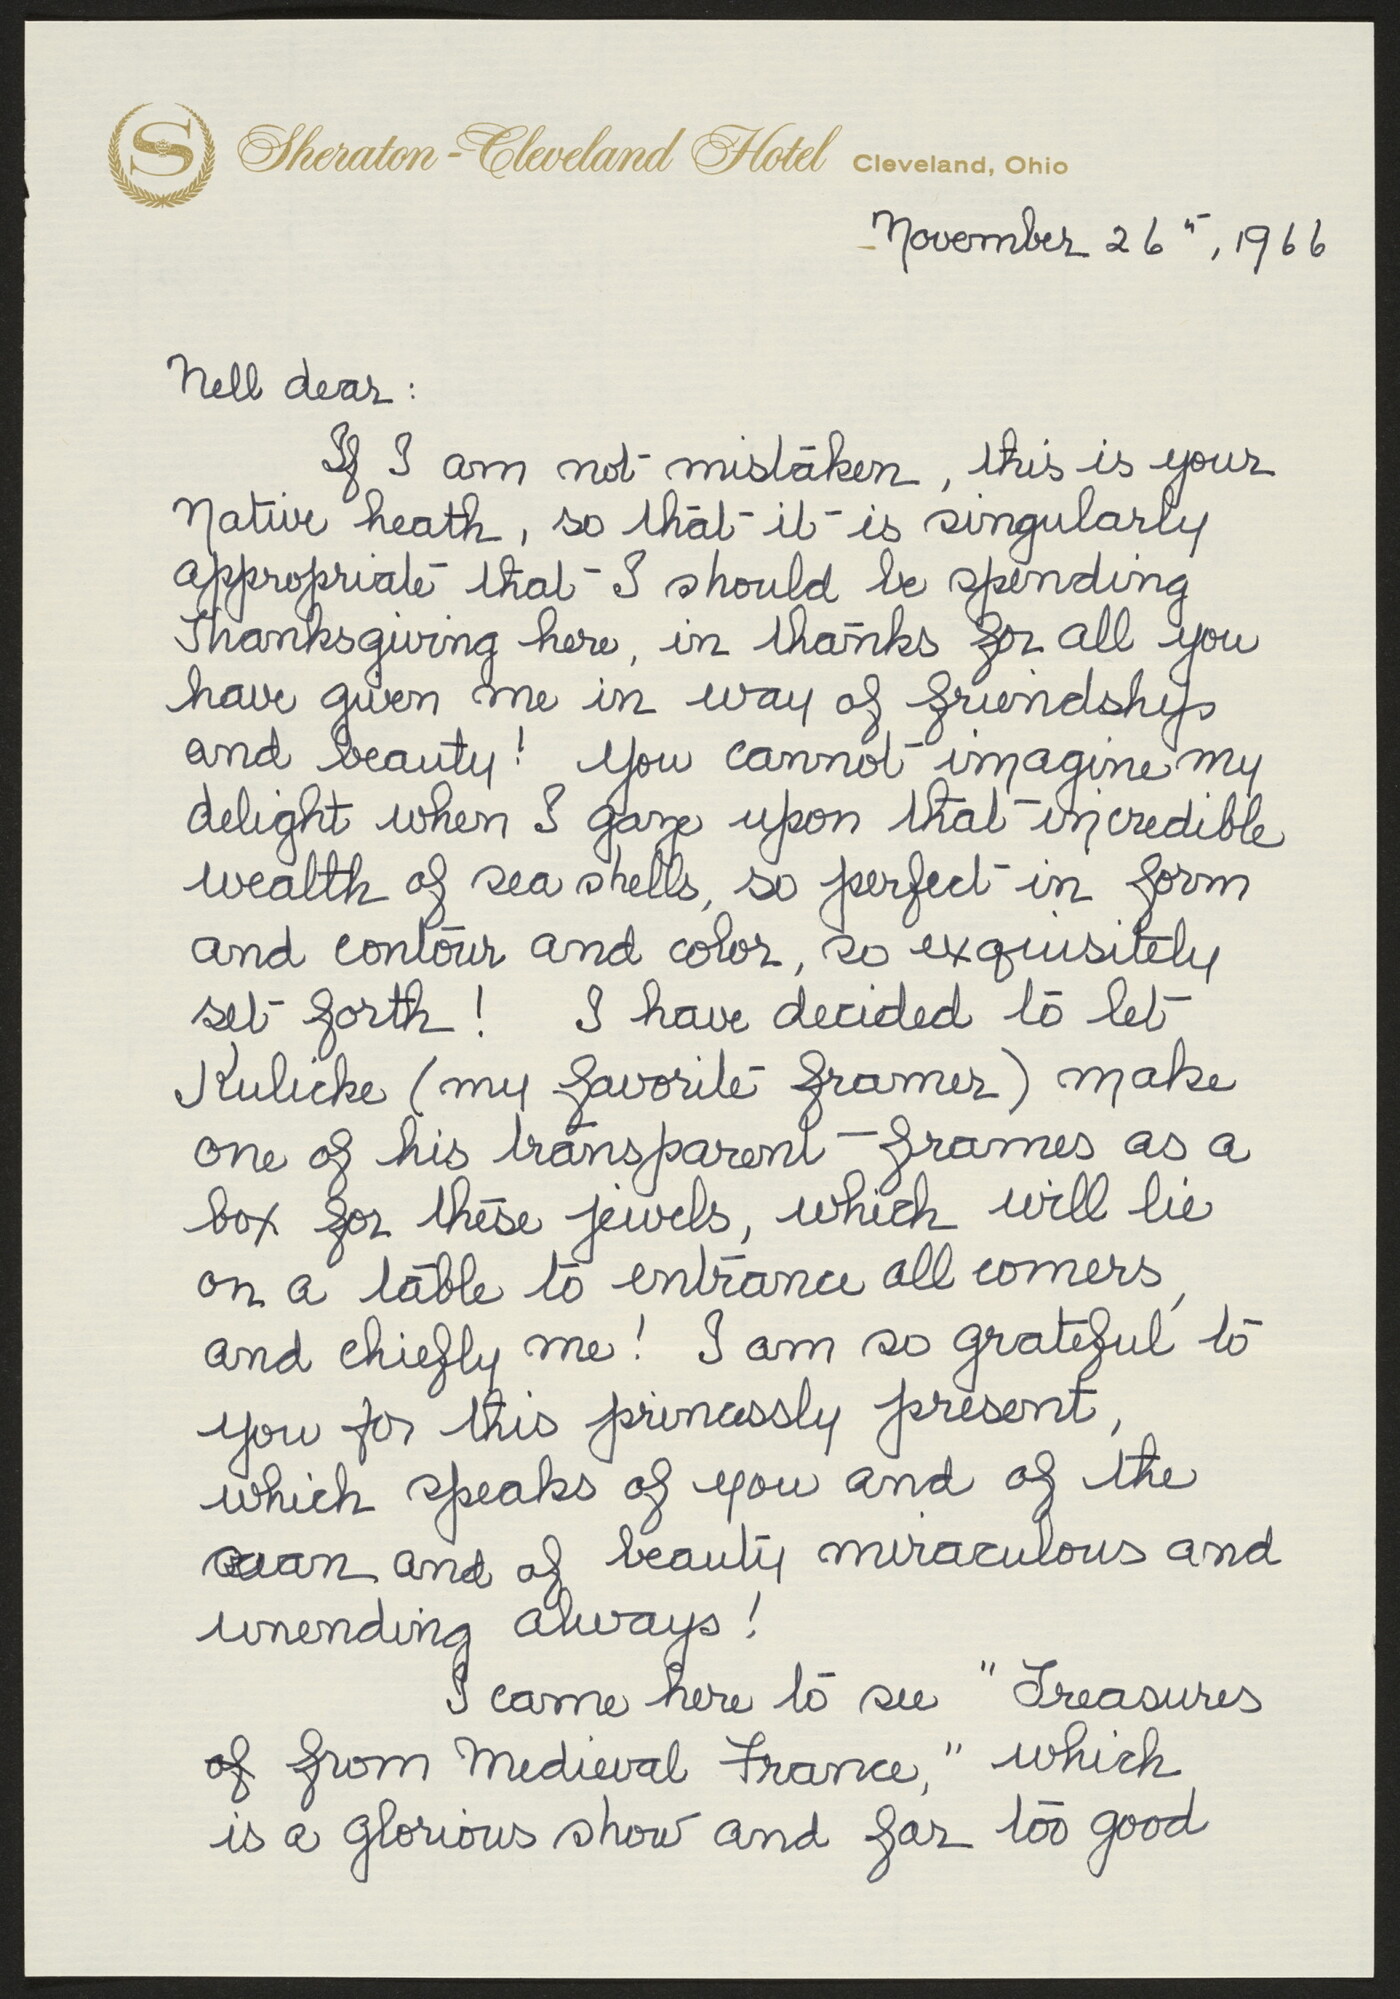 S
Sheraton-Cleveland Hotel Cleveland, Ohio
November 26th, 1966
Nell dear:
If I am not mistaken, this is your
Native heath, so that it is singularly
appropriate that I should be spending
Thanksgiving here, in thanks for all you
have given me in way of friendship
and beauty! You cannot imagine my
delight when I gaze upon that incredible
wealth of sea shells, so perfect in form
and contour and color, so exquisitely
set forth! I have decided to let
Kulicke (my favorite framer) make
one of his transparent frames as a
box for these jewels, which will lie
on a table to entrance all comers,
and chiefly me! I am so grateful to
you for this princessly present,
which speaks of you and of the
and of beauty miraculous and
unending always!
I came here to see "Treasures
of from Medieval France," which
is a glorious show and far too good